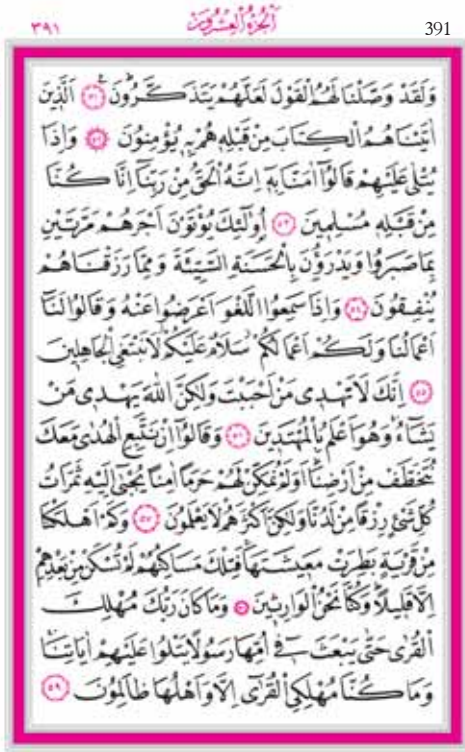 ٣٩١ اَلْجُزْءُ الْعِشْرُونَ 391
وَلَقَدْ وَصَّلْنَا لَهُمُ الْقَوْلَ لَعَلَّهُمْ يَتَذَكَّرُونَ ﴿٥١﴾ اَلَّذ۪ينَ
اٰتَيْنَاهُمُ الْكِتَابَ مِنْ قَبْلِه۪ هُمْ بِه۪ يُؤْمِنُونَ ﴿٥٢﴾ وَاِذَا
يُتْلٰى عَلَيْهِمْ قَالُٓوا اٰمَنَّا بِه۪ٓ اِنَّهُ الْحَقُّ مِنْ رَبِّنَٓا اِنَّا كُنَّا
مِنْ قَبْلِه۪ مُسْلِم۪ينَ ﴿٥٣﴾ اُو۬لٰٓئِكَ يُؤْتَوْنَ اَجْرَهُمْ مَرَّتَيْنِ
بِمَا صَبَرُوا وَيَدْرَؤُ۫نَ بِالْحَسَنَةِ السَّيِّئَةَ وَمِمَّا رَزَقْنَاهُمْ
يُنْفِقُونَ ﴿٥٤﴾ وَاِذَا سَمِعُوا اللَّغْوَ اَعْرَضُوا عَنْهُ وَقَالُوا لَنَٓا
اَعْمَالُنَا وَلَكُمْ اَعْمَالُكُمْ سَلَامٌ عَلَيْكُمْ لَا نَبْتَغِي الْجَاهِل۪ينَ
﴿٥٥﴾ اِنَّكَ لَا تَهْد۪ي مَنْ اَحْبَبْتَ وَلٰكِنَّ اللّٰهَ يَهْد۪ي مَنْ
يَشَٓاءُ وَهُوَ اَعْلَمُ بِالْمُهْتَد۪ينَ ﴿٥٦﴾ وَقَالُٓوا اِنْ نَتَّبِعِ الْهُدٰى مَعَكَ
نُتَخَطَّفْ مِنْ اَرْضِنَا اَوَلَمْ نُمَكِّنْ لَهُمْ حَرَمًا اٰمِنًا يُجْبٰٓى اِلَيْهِ ثَمَرَاتُ
كُلِّ شَيْءٍ رِزْقًا مِنْ لَدُنَّا وَلٰكِنَّ اَكْثَرَهُمْ لَا يَعْلَمُونَ ﴿٥٧﴾ وَكَمْ اَهْلَكْنَا
مِنْ قَرْيَةٍ بَطِرَتْ مَع۪يشَتَهَا فَتِلْكَ مَسَاكِنُهُمْ لَمْ تُسْكَنْ مِنْ بَعْدِهِمْ
اِلَّا قَل۪يلًا وَكُنَّا نَحْنُ الْوَارِث۪ينَ ﴿٥٨﴾ وَمَا كَانَ رَبُّكَ مُهْلِكَ
الْقُرٰى حَتّٰى يَبْعَثَ ف۪ٓي اُمِّهَا رَسُولًا يَتْلُوا عَلَيْهِمْ اٰيَاتِنَا
وَمَا كُنَّا مُهْلِكِي الْقُرٰٓى اِلَّا وَاَهْلُهَا ظَالِمُونَ ﴿٥٩﴾